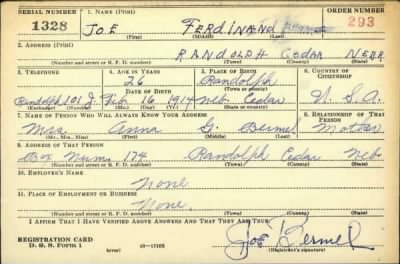 SERIAL NUMBER 1. NAME (Print) ORDER NUMBER
1328 JOE FERDINAND BERMEL 293
(First) (Middle) (Last)
2. ADDRESS (Print)
RANDOLPH Cedar NEBR.
(Number and street or R. F. D. number) (Town) (County) (State)
3. TELEPHONE 4. AGE IN YEARS 5. PLACE OF BIRTH 6. COUNTRY OF CITIZENSHIP
26 Randolph
DATE OF BIRTH (Town or county)
Randolph 191 J. Feb 16 1914 Neb. Cedar U. S. A.
(Exchange) (Number) (Mo.) (Day) (Yr.) (State or country)
7. NAME OF PERSON WHO WILL ALWAYS KNOW YOUR ADDRESS 8. RELATIONSHIP OF THAT PERSON
Mrs. Anna G. Bermel Mother
(Mr., Mrs., Miss) (First) (Middle) (Last)
9. ADDRESS OF THAT PERSON
Box Num. 174 Randolph Cedar Neb.
(Number and street or R. F. D. number) (Town) (County) (State)
10. EMPLOYER'S NAME
None
11. PLACE OF EMPLOYMENT OR BUSINESS
None.
(Number and street or R. F. D. number) (Town) (County) (State)
I AFFIRM THAT I HAVE VERIFIED ABOVE ANSWERS AND THAT THEY ARE TRUE.
REGISTRATION CARD Joe Bermel
D. S. S. Form 1 (over) 16—17105 (Registrant's signature)